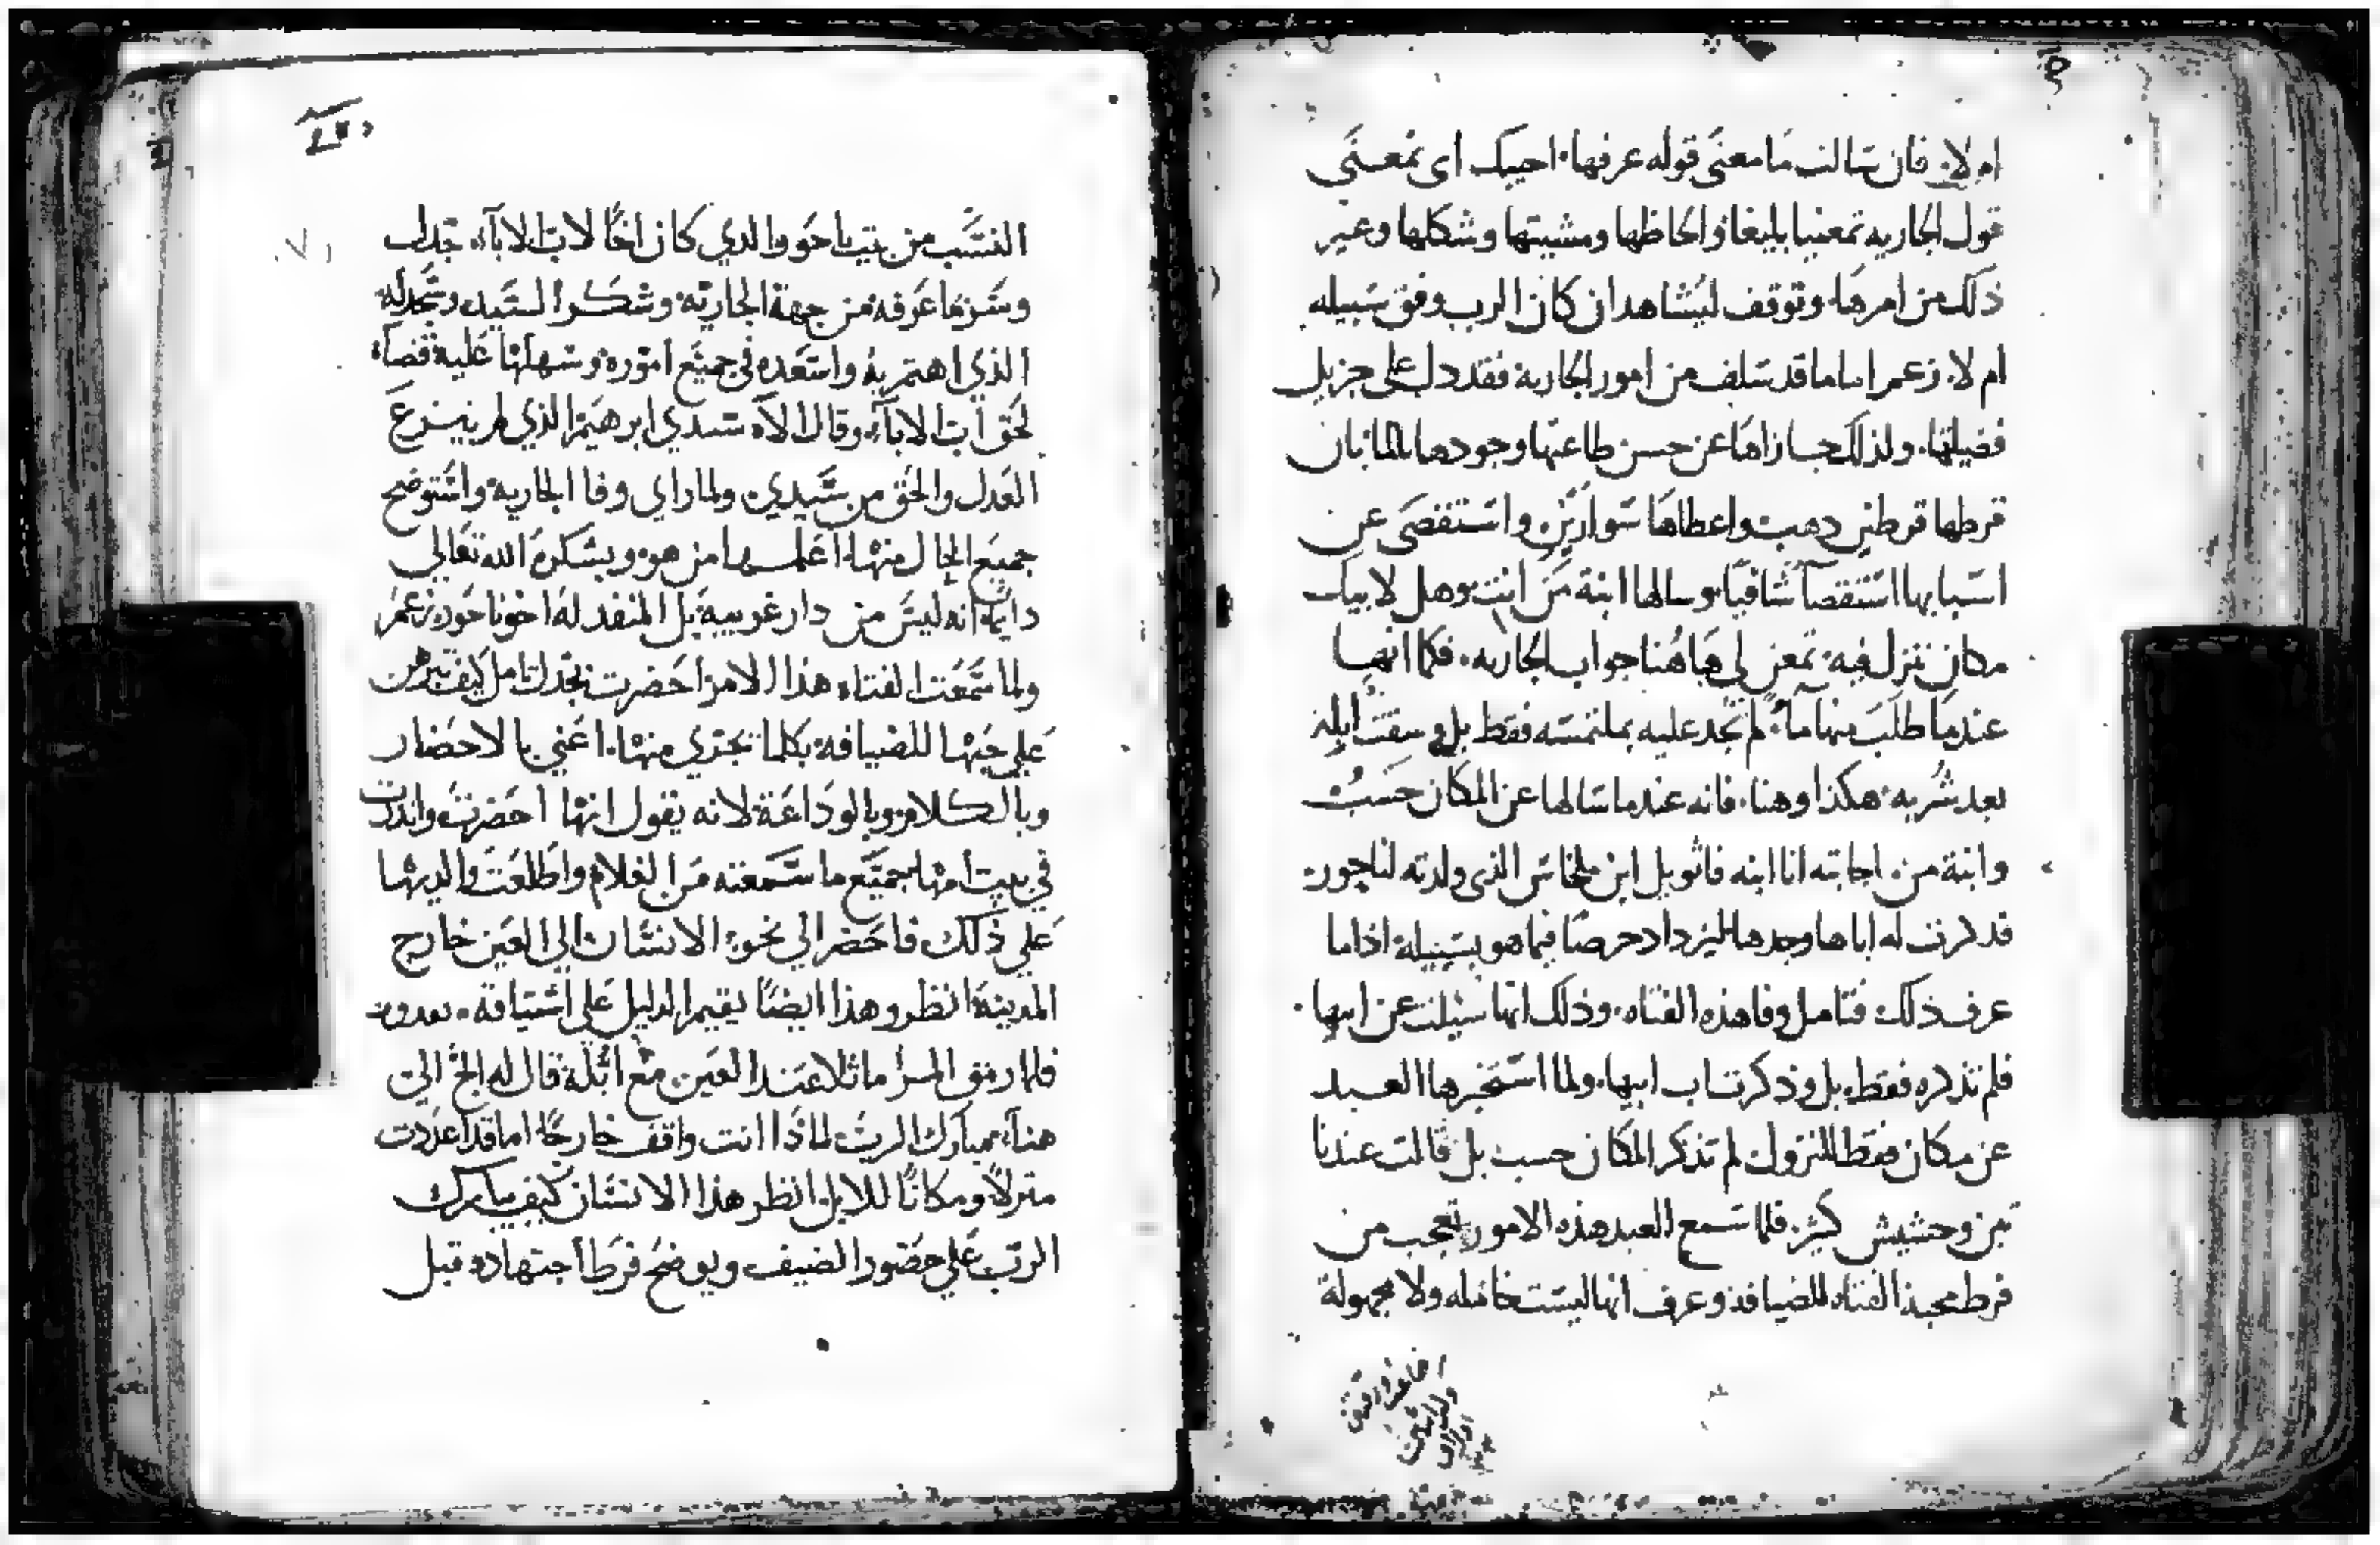 ام لا. فان سالت ما معنى قوله عرفها. اجيبك اى تمعنى
قول الجاريه تمعنيا بليغا والحاظها ومشيتها وشكلها وغير
ذلك من امرها. وتوقف ليشاهد ان كان الرب وفق سبيله
ام لا. زعم اما ما قد سلف من امور الجارية فقد دل على جزيل
فضيلتها. ولذلك جازاها عن حسن طاعتها وجودها بالما بان
قرطها قرطين دهب واعطاها سوارين واستقصى عن
اسبابها استقصآ شافيا وسالها ابنة من انت وهل لابيك
مكان ننزل فيه. تمعن لي هاهنا جواب الجاريه. فكما انها
عندما طلب منها مآءً لم تجد عليه بملتمسه فقط بل وسقت ابله
بعد شربه. هكذا وهنا. فانه عندما سالها عن المكان حسب
وابنة من. اجابته انا ابنه فاثويل ابن ملخاس الذى ولدته لناحور.
قد ذكرت له اباها وجدها ليزداد حرصا فيما هو بسبيله اذا ما
عرف ذلك فتامل وفا هذه الفتاه. وذلك انها سيلت عن ابيها.
فلم تذكره فقط. بل وذكرت اب ابيها. ولما استخبرها العبد
عن مكان فقط للنزول لم تذكر المكان حسب بل قالت عندنا
تبن وحشيش كثير. فلما سمع العبد هذه الامور تعجب من
فرط محبة الفتاه للضيافة وعرف انها ليست خامله ولا مجهولة
النسب من بيت ناحور الذي كان اخًا لاب الابآء. جدا
وسر بما عرفه من جهة الجاريه وشكر السيد وسجد له
الذي اهتم به واسعده في جميع اموره وسهلها عليه قضآء
لحق اب الابآء. وقال الاه سيدي ابرهيم الذي لم ينزع
العدل والحق من سيدي. ولما راي وفا الجارية واستوضح
جميع الحال منها. اعلمها من هو. ويشكره الله تعالى
دايمًا انه ليس من دار غريبه بل المنفد له اخونا حور. زعم
ولما سمعت الفتاه هذا الامر احضرت تجدك تامل كيف تبرهن
على حبها للضيافة بكلما تجتري منها. اعني بالاحضار
وبالكلام وبالوداعة لانه يقول انها احضرت وانذرت
في بيت امها بجميع ما سمعته من الغلام واطلعت والديها
على ذلك فاحضر الي نحو الانسان الي العين خارج
المدينة انظر وهذا ايضًا يقيم الدليل على اشتياقه. بعدوه
فلما رمق المرا ماثلا عند العين مع ابله قال له الج الي
هنا يا مبارك الرب لماذا انت واقف خارجًا. اما قد اعددت
منزلًا ومكانًا للابل. انظر هذا الانسان كيف يبارك
الرب على حضور الضيف ويوضح فرط اجتهاده قبل